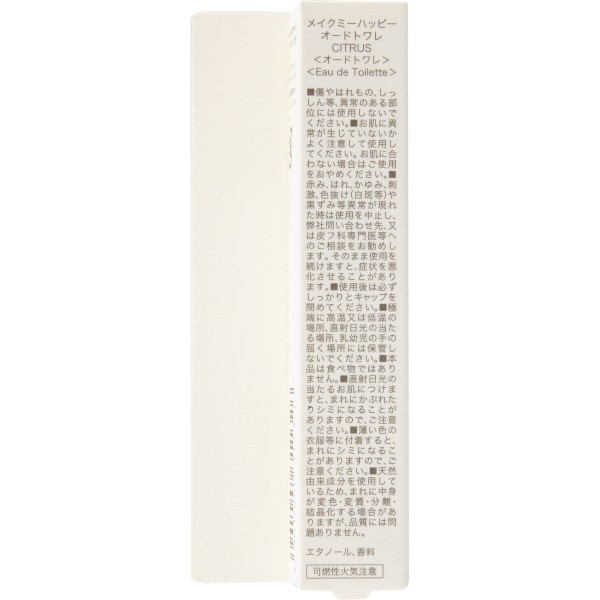 メイクミーハッピー
オードトワレ
CITRUS
<オードトワレ>
<Eau de Toilette>
■傷やはれもの、しっ
しん等、異常のある部
位には使用しないで
ください。■お肌に異
常が生じていないか
よく注意して使用し
てください。お肌に合
わない場合はご使用
をおやめください。■
赤み、はれ、かゆみ、刺
激、色抜け(白斑等)や
黒ずみ等異常が現れ
た時は使用を中止し、
弊社問い合わせ先、又
は皮フ科専門医等へ
のご相談をお勧めし
ます。そのまま使用を
続けますと、症状を悪
化させることがあり
ます。■使用後は必ず
しっかりとキャップを
閉めてください。■極
端に高温又は低温の
場所、直射日光の当た
る場所、乳幼児の手の
届く場所には保管し
ないでください。■本
品は食べ物ではあり
ません。■直射日光の
当たるお肌につけま
すと、まれにかぶれた
りシミになることが
ありますので、ご注意
ください。■薄い色の
衣服等に付着すると、
まれにシミになるこ
とがありますので、ご
注意ください。■天然
由来成分を使用して
いるため、まれに中身
が変色・変質・分離・
結晶化する場合があり
ますが、品質には問
題ありません。
エタノール、香料
可燃性火気注意